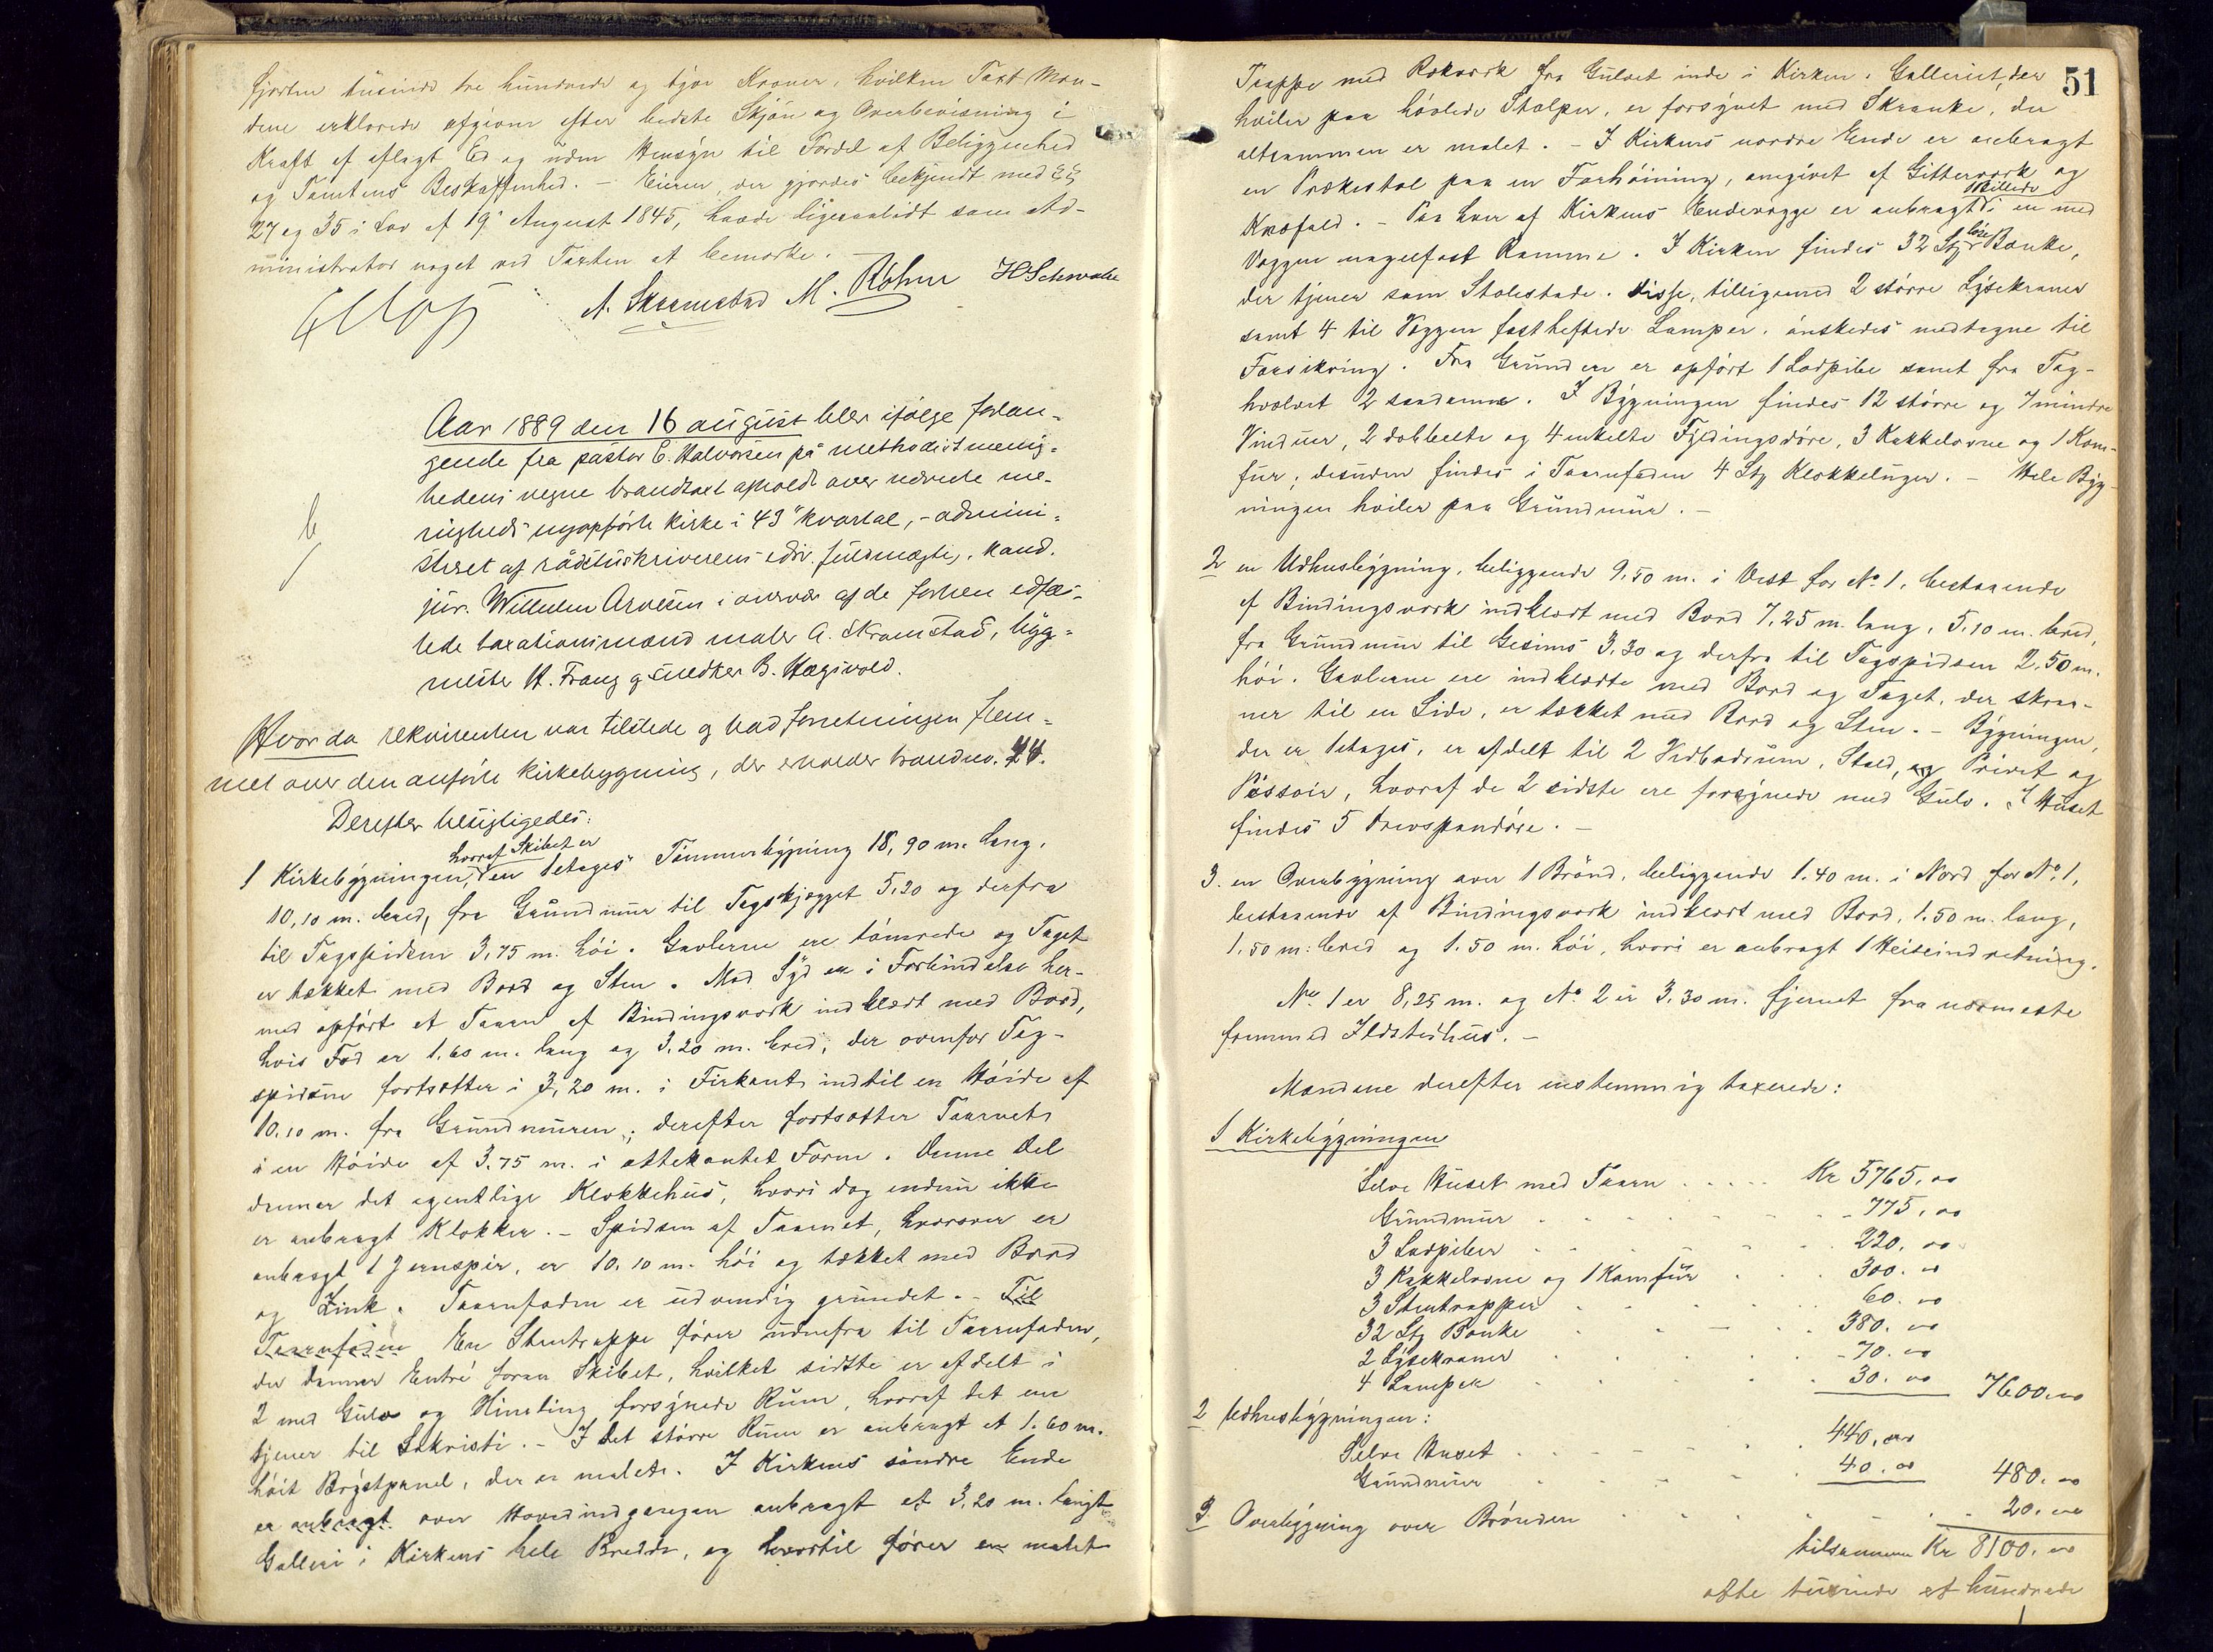 fjorten tusinde tre hundrede og tyve Kroner, hvilken Taxt Mæn-
dene erklærede afgiven efter bedste Skjøn og Overbevisning i
Kraft af aflagt Ed og uden Hensyn til Fordel af Beliggenhed
og Tomtens Beskaffenhed. – Eieren, der gjordes bekjendt med §§
27 og 35 i Lov af 19' August 1845, havde ligesaalidt som Ad-
ministrator noget ved Taxten at bemærke. –
A. Skramstad M. Röhne H Schwabe
Aar 1889 den 16 august blev ifølge forlan-
gende fra pastor E. Halvorsen på methodistmenig-
hedens vegne brandtaxt afholdt over nævnte me-
nigheds nyopførte kirke i 43" kvartal, – admini-
streret af rådstuskriverens edsv. fuldmægtig, kand.
jur. Wilhelm Arnesen i overvær af de forhen edfæs-
tede taxationsmænd maler A. Skramstad, bygg-
mester H. Franz og snedker B. Hægsvold.
Hvor da rekvirenten var tilstede og bad forretningen frem-
met over den anførte kirkebygning, der erholder brandno. 44.
Derefter besigtigedes:
1 Kirkebygningen, hvoraf Skibet er en 1etages Tømmerbygning 18,90 m. lang,
10,10 m. bred, fra Grundmur til Tagskjægget 5,20 og derfra
til Tagspidsen 3,75 m. høi. Gavlerne ere tømrede og Taget
er tækket med Bord og Sten. Mod Syd er i Forbindelse her-
med opført et Taarn af Bindingsværk indklædt med Bord,
hvis Fod er 1.60 m. lang og 3,20 m. bred, der ovenfor Tag-
spidsen fortsætter i 3,20 m. i Firkant indtil en Høide af
10.10 m. fra Grundmuren; derefter fortsætter Taarnet
i en Høide af 3.75 m. i ottekantet Form. Denne Del
danner det egentlige Klokkehus, hvori dog endnu ikke
er anbragt Klokker. – Spidsen af Taarnet, hvorover er
anbragt 1 Jernspir, er 10.10 m. høi og tækket med Bord
og Zink. Taarnfoden er udvendig grundet. – Til
Taarnfoden En Stentrappe fører udenfra til Taarnfoden,
der danner Entré foran Skibet, hvilket sidste er afdelt i
2 med Gulv og Himling forsynede Rum, hvoraf det ene
tjener til Sakristi. – I det større Rum er anbragt et 1.60 m.
høit Brystpanel, der er malet. I Kirkens søndre Ende
er anbragt over Hovedindgangen anbragt et 3.20 m. langt
Galleri i Kirkens hele Bredde, og hvortil fører en malet
51
Trappe med Rækværk fra Gulvet inde i Kirken. Galleriet, der
hviler paa høvlede Stolper, er forsynet med Skranke, der
altsammen er malet. – I Kirkens nordre Ende er anbragt
en Prækestol paa en Forhøining, omgivet af Gitterværk og
Knæfald. – Paa hver af Kirkens Endevægge er anbragt 1 Billede i en med
Væggen nagelfast Ramme. I Kirken findes 32 Stk løse Bænke,
der tjener som Stolestade. Disse, tilligemed 2 større Lysekroner
samt 4 til Væggen fastheftede Lamper, ønskedes medtagne til
Forsikring. Fra Grunden er opført 1 Ladpibe samt fra Tag-
hvælvet 2 saadanne. I Bygningen findes 12 større og 7 mindre
Vinduer, 2 dobbelte og 4 enkelte Fyldingsdøre, 3 Kakkelovne og 1 Kom-
fur; desuden findes i Taarnfoden 4 Stk Klokkeluger. – Hele Byg-
ningen hviler paa Grundmur. –
2 en Udhusbygning, beliggende 9,50 m. i Vest for No. 1, bestaaende
af Bindingsværk indklædt med Bord 7,25 m. lang, 5,10 m. bred,
fra Grundmur til Gesims 3,30 og derfra til Tagspidsen 2,50 m.
høi. Gavlerne ere indklædte med Bord og Taget, der skraa-
ner til en Side, er tækket med Bord og Sten. – Bygningen,
der er 1etages, er afdelt til 2 Vedbodrum, Stald, og Privet og
Pissoir, hvoraf de 2 sidste ere forsynede med Gulv. I Huset
findes 5 Drevspandøre. –
3. en Overbygning over 1 Brønd, beliggende 1.40 m. i Nord for No. 1,
bestaaende af Bindingsværk indklædt med Bord, 1.50 m. lang,
1.50 m. bred og 1.50 m. høi, hvori er anbragt 1 Heiseindretning.
No. 1 er 8,25 m. og No 2 er 3,30 m. fjernet fra nærmeste
fremmed Ildstedhus. –
Mændene derefter enstemmig taxerede:
1 Kirkebygningen
Selve Huset med Taarn . . . . . Kr 5765.00
Grundmur . . . . . . - 775.00
3 Ladpiber . . . . . . 220.00
3 Kakkelovne og 1 Komfur . . . 300.00
3 Stentrapper . . . . . . 60.00
32 Stk Bænke . . . . . . 380.00
2 Lysekroner . . . . . . - 70.00
4 Lamper . . . . . . 30.00 7600.00
2 Udhusbygningen:
Selve Huset . . . . . . 440.00
Grundmur . . . . . . 40.00 480.00
3. Overbygning over Brønden . . . . . . 20.00
tilsammen Kr 8100.00
otte tusinde et hundrede